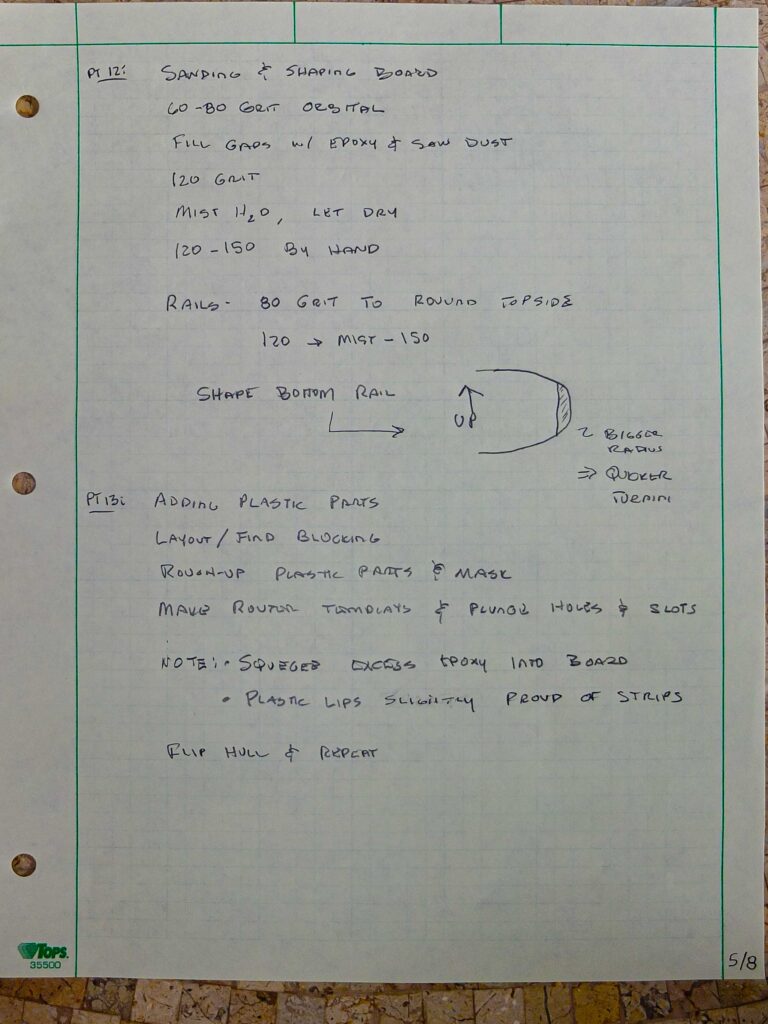 PT 12: SANDING & SHAPING BOARD
60-80 GRIT ORBITAL
FILL GAPS w/ EPOXY & SAW DUST
120 GRIT
MIST H2O, LET DRY
120-150 BY HAND
RAILS- 80 GRIT TO ROUUND TOPSIDE
120 → MIST - 150
SHAPE BOTTOM RAIL
UP
BIGGER
RADIUS
⇒ QUICKER
PT 13: ADDING PLASTIC PARTS
LAYOUT/FIND BLOCKING
ROUGH-UP PLASTIC PARTS & MASK
MAKE ROUTER & PLUNGE HOLES & SLOTS
NOTE: • SQUEGEE EXCESS EPOXY INTO BOARD
• PLASTIC LIPS SLIGHTLY PROUD OF STRIPS
FLIP HULL & REPEAT
TOPS
35500
5/8